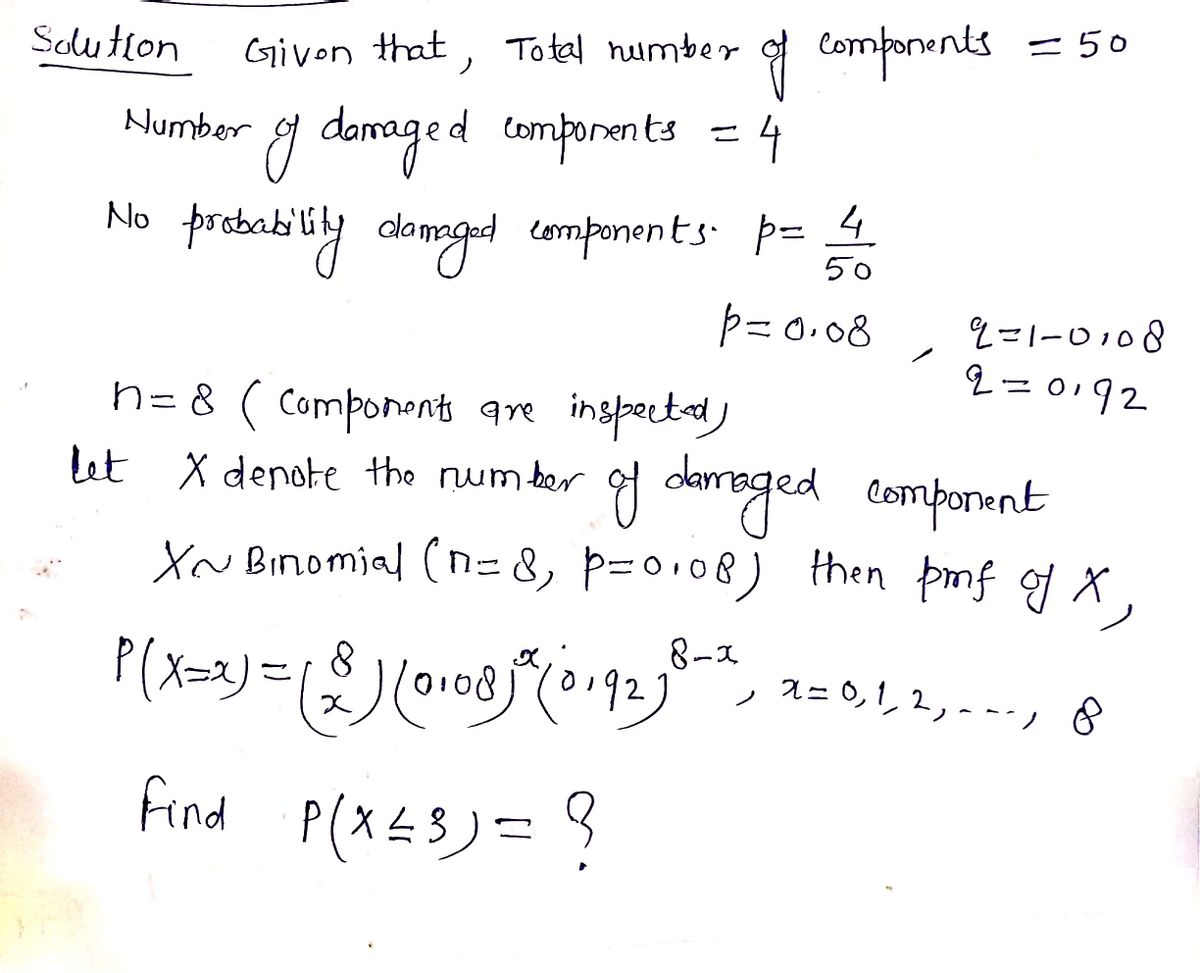 Solution Given that, Total number of components = 50
Number of damaged components = 4
No probability damaged components. p = 4/50
p = 0.08 , q = 1 - 0.08
q = 0.92
n = 8 ( Components are inspected)
let X denote the number of damaged component
X ~ Binomial (n = 8, p = 0.08) then pmf of X,
P(X=x) = (8 x) (0.08)^x (0.92)^8-x , x = 0, 1, 2, ---, 8
Find P(X ≤ 3) = ?